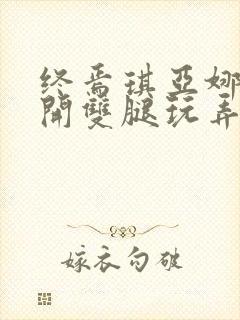 终焉琪亚娜
開雙腿玩弄
嫁衣勾破